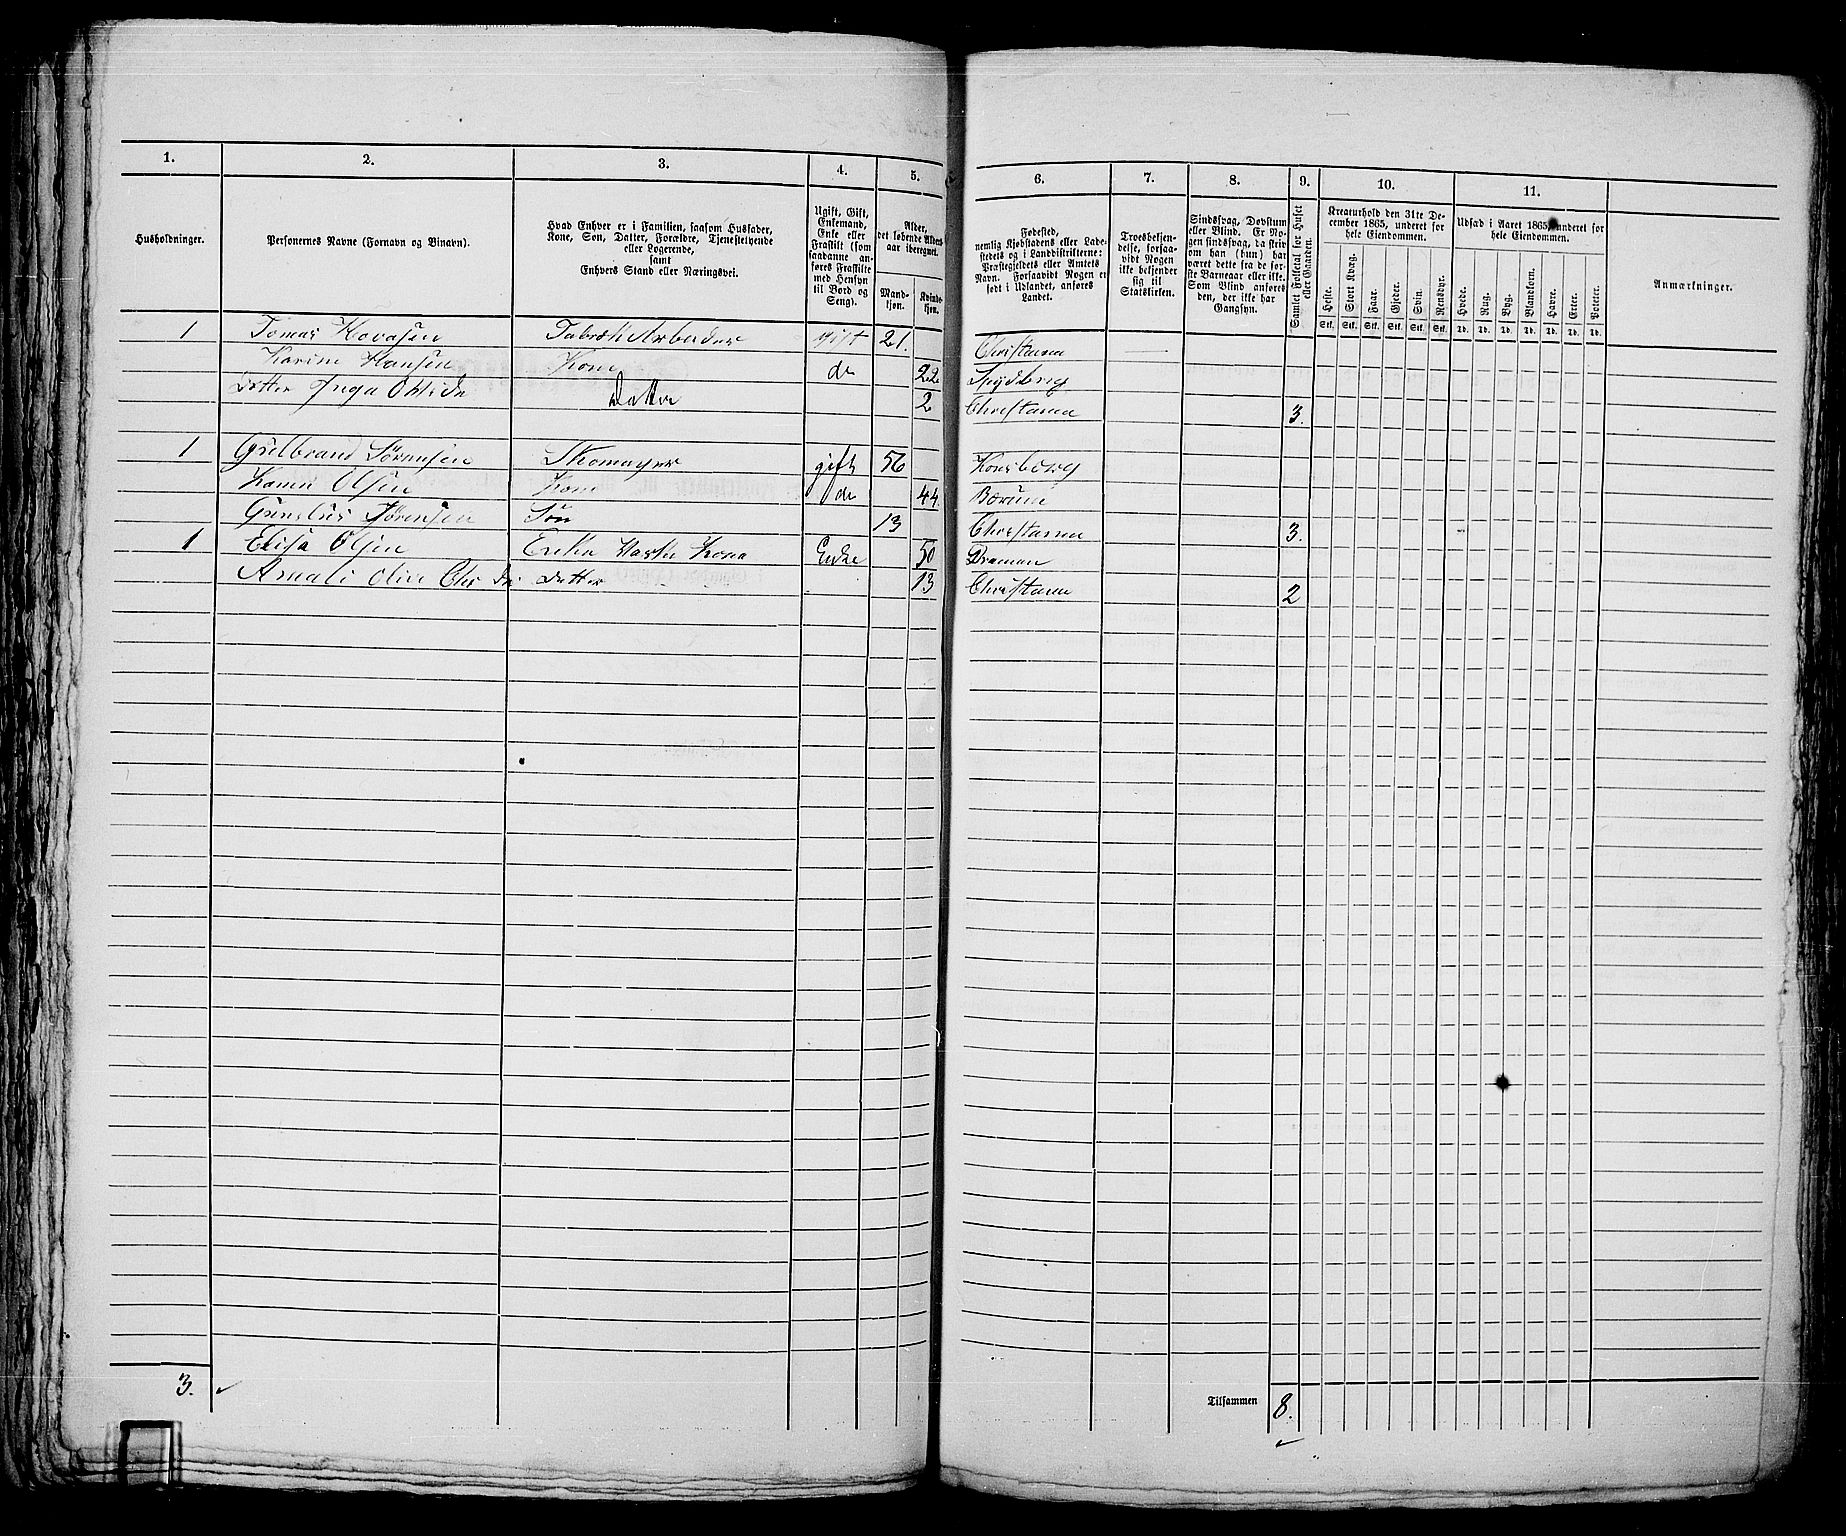 1. 2. 3. 4. 5. 6. 7. 8. 9. 10. 11.
Husholdninger.
Personernes Navne (Fornavn og Binavn).
Hvad Enhver er i Familien, saasom Husfader,
Kone, Søn, Datter, Forældre, Tjenestetyende
eller Logerende,
samt
Enhvers Stand eller Næringsvei.
Ugift, Gift,
Enkemand,
Enke eller
Fraskilt (som
saadanne an-
føres Fraskilte
med Hensyn
til Bord og
Seng).
Alder,
det løbende Alders-
aar iberegnet.
Mand-
kjøn.
Kvinde-
kjøn.
Fødested,
nemlig Kjøbstadens eller Lade-
stedets og i Landdistrikterne:
Præstegjeldets eller Amtets
Navn. Forsaavidt Nogen er
født i Udlandet, anføres
Landet.
Troesbekjen-
delse, forsaa-
vidt Nogen
ikke bekjender
sig til
Statskirken.
Sindssvag, Døvstum
eller Blind. Er No-
gen sindssvag, da skriv
om han (hun) har
været dette fra de før-
ste Barneaar eller ikke.
Som Blind anføres
den, der ikke har
Gangsyn.
Samlet Folketal for Huset
eller Gaarden.
Kreaturhold den 31te De-
cember 1865, underet for
hele Eiendommen.
Heste. Stort Kvæg. Faar. Gjeder. Svin. Rensdyr.
Stk. Stk. Stk. Stk. Stk. Stk.
Udsæd i Aaret 1865, underet for
hele Eiendommen.
Hvede. Rug. Byg. Blandkorn. Havre. Erter. Poteter.
Td. Td. Td. Td. Td. Td. Td.
Anmærkninger.
1 Tomas Arbeider gift 21. Christania
Karine Hansen Kone do 22 Spydberg
Datter Inga Datter 2 Christania 3.
1 Gulbrand Sørensen Skomager gift 56 Konsberg
Karen Olsen Kone do 44 Bærum
Sørensen Søn 13 Christania 3.
1 Elisa Olsen Kone Enke 50 Dramen
Amali Olive Datter 13 Christania 2
3.
Tilsammen 8.